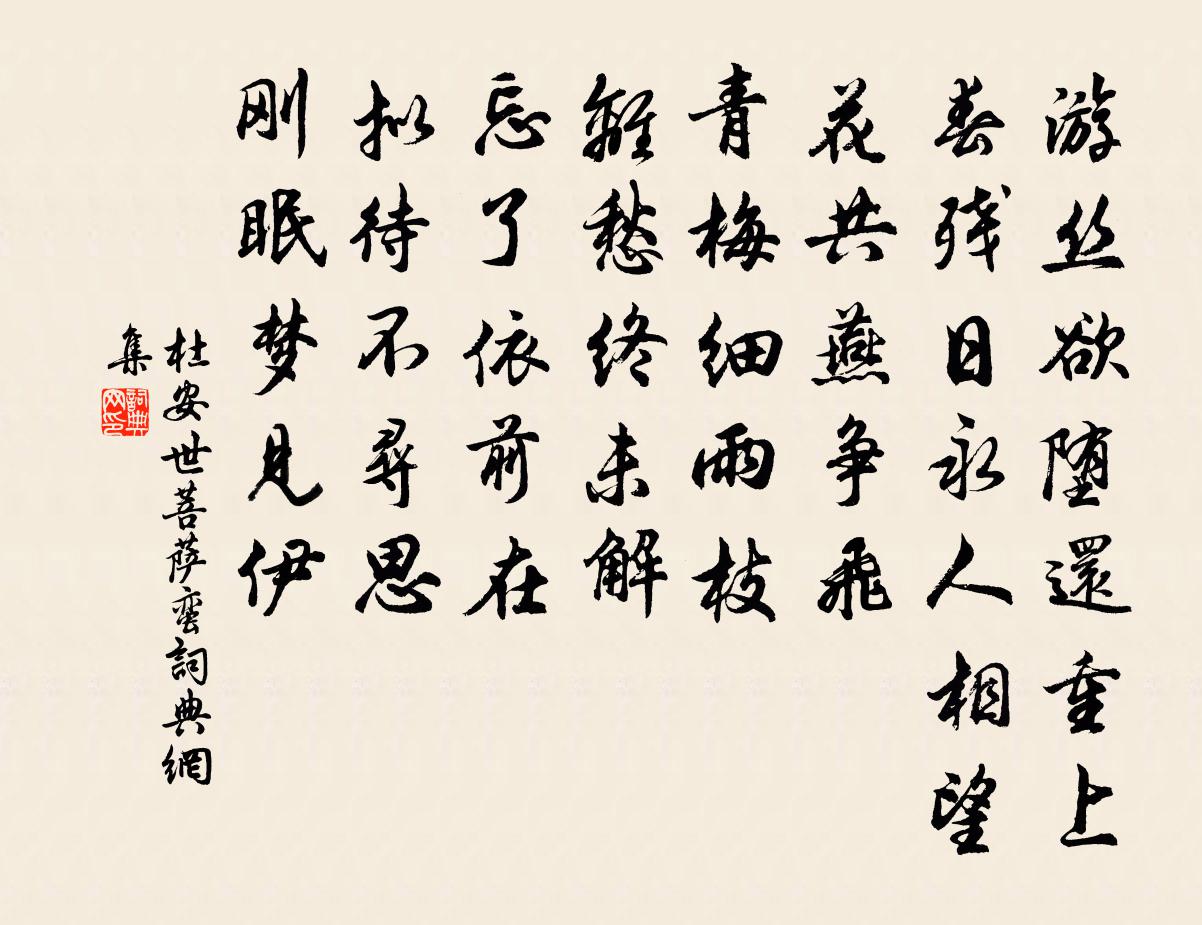 游丝欲堕還重上
春残日永人相望
花共燕争飛
青梅细雨枝
離愁终未解
忘了依前在
拟待不尋思
刚眠梦見伊
杜安世菩萨蛮詞典網
集
詞典
网印